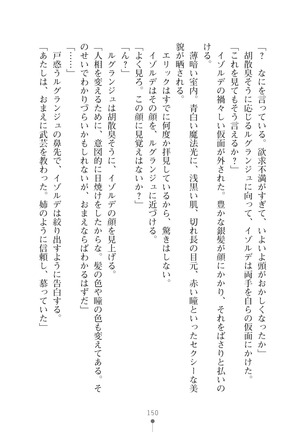 「？　なにを言っている。欲求不満がすぎて、いよいよ頭がおかしくなったか」
胡散臭そうに応じるルグランジュに向って、イゾルデは両手を自らの仮面にかけた。
「これを見てもそう言えるか？」
イゾルデの禍々しい仮面が外された。豊かな銀髪が顔にかかり、それをばさりと払いの
ける。
薄暗い室内。青白い魔法光に、浅黒い肌、切れ長の目元、赤い瞳といったセクシーな美
貌が晒される。
エリックはすでに何度か拝見しているから、驚きはしない。
「よく見ろ。この顔に見覚えはないか？」
イゾルデはその顔を、ルグランジュに近づける。
「ん？」
ルグランジュは胡散臭そうに、イゾルデの顔を見上げる。
「人相を変えるために、意図的に日焼けをしたからな。髪の色や瞳の色も変えてある。そ
のせいでわかりづらいかもしれないが、おまえならばわかるはずだ」
「……」
戸惑うルグランジュの鼻先で、イゾルデは絞り出すように告白する。
「あたしは、おまえに武芸を教わった。姉のように信頼し、慕っていた」
150